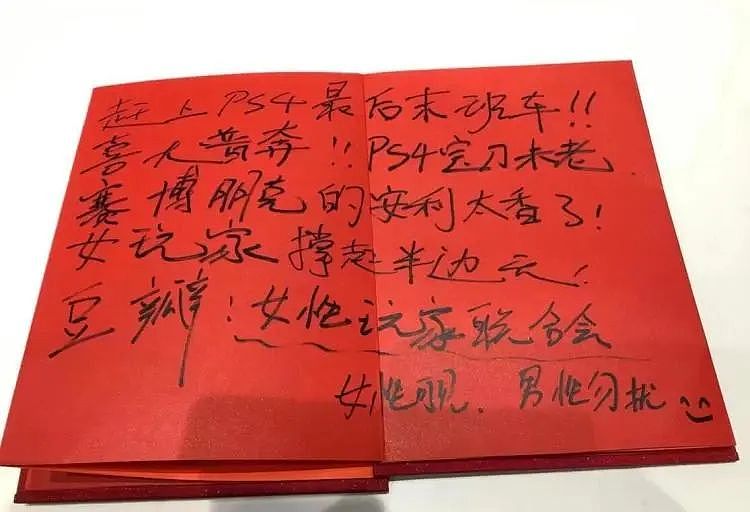 赶上PS4最后末班车!!
喜大普奔!!PS4宝刀未老
赛博朋克的安利太香了!
女玩家撑起半边天!
豆瓣:女性玩家联合会
女性限.男性勿扰